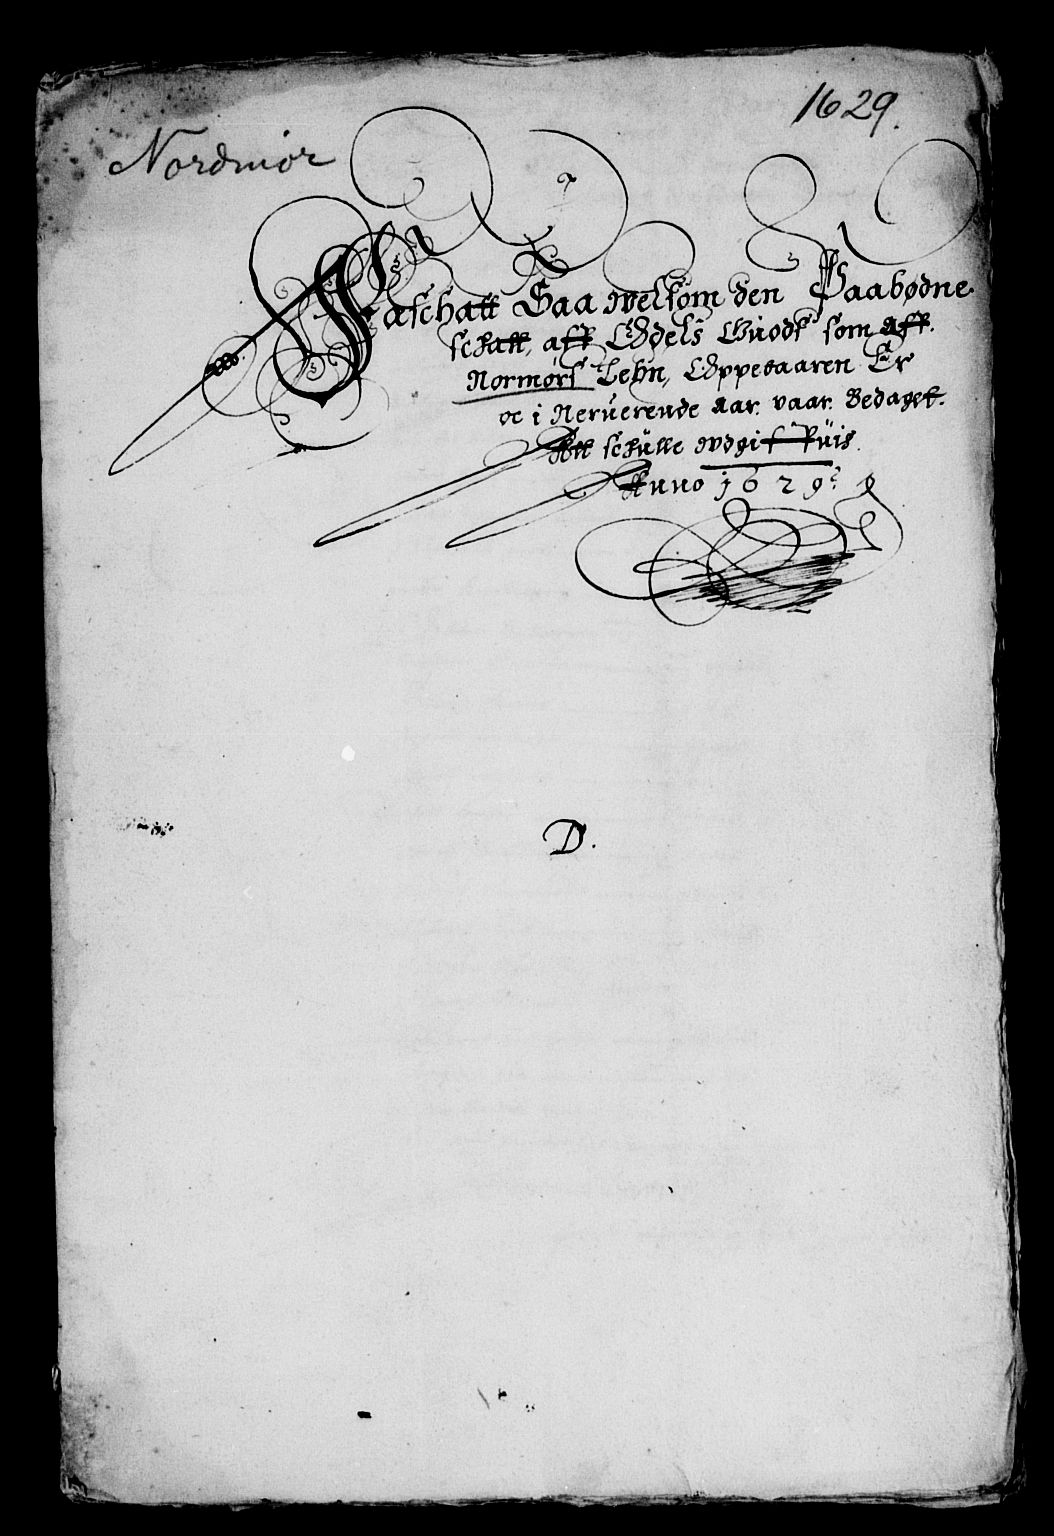 1629.
Nordmør
Faschatt Saa welsom den Paabødne
schatt, aff Odels Guods som aff.
Normørs Lehn, Oppebaaren Er
oc i Neruerende Aar. vaar. Bedaget.
Att schulle vdgiffuis.
Anno 1629
D.